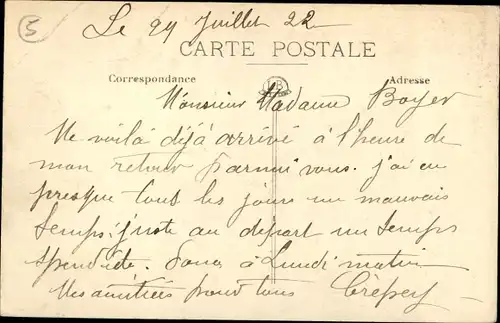 5
Le 29 Juillet 22
CARTE POSTALE
Correspondance
Adresse
Monsieur Madame Boyer
Me voilà déjà arrivé à l'heure de
mon retour parmi vous. j'ai eu
presque tout les jours un mauvais
temps; juste au départ un temps
splendide. Donc à Lundi matin
Mes amitiés pour tous Crépey